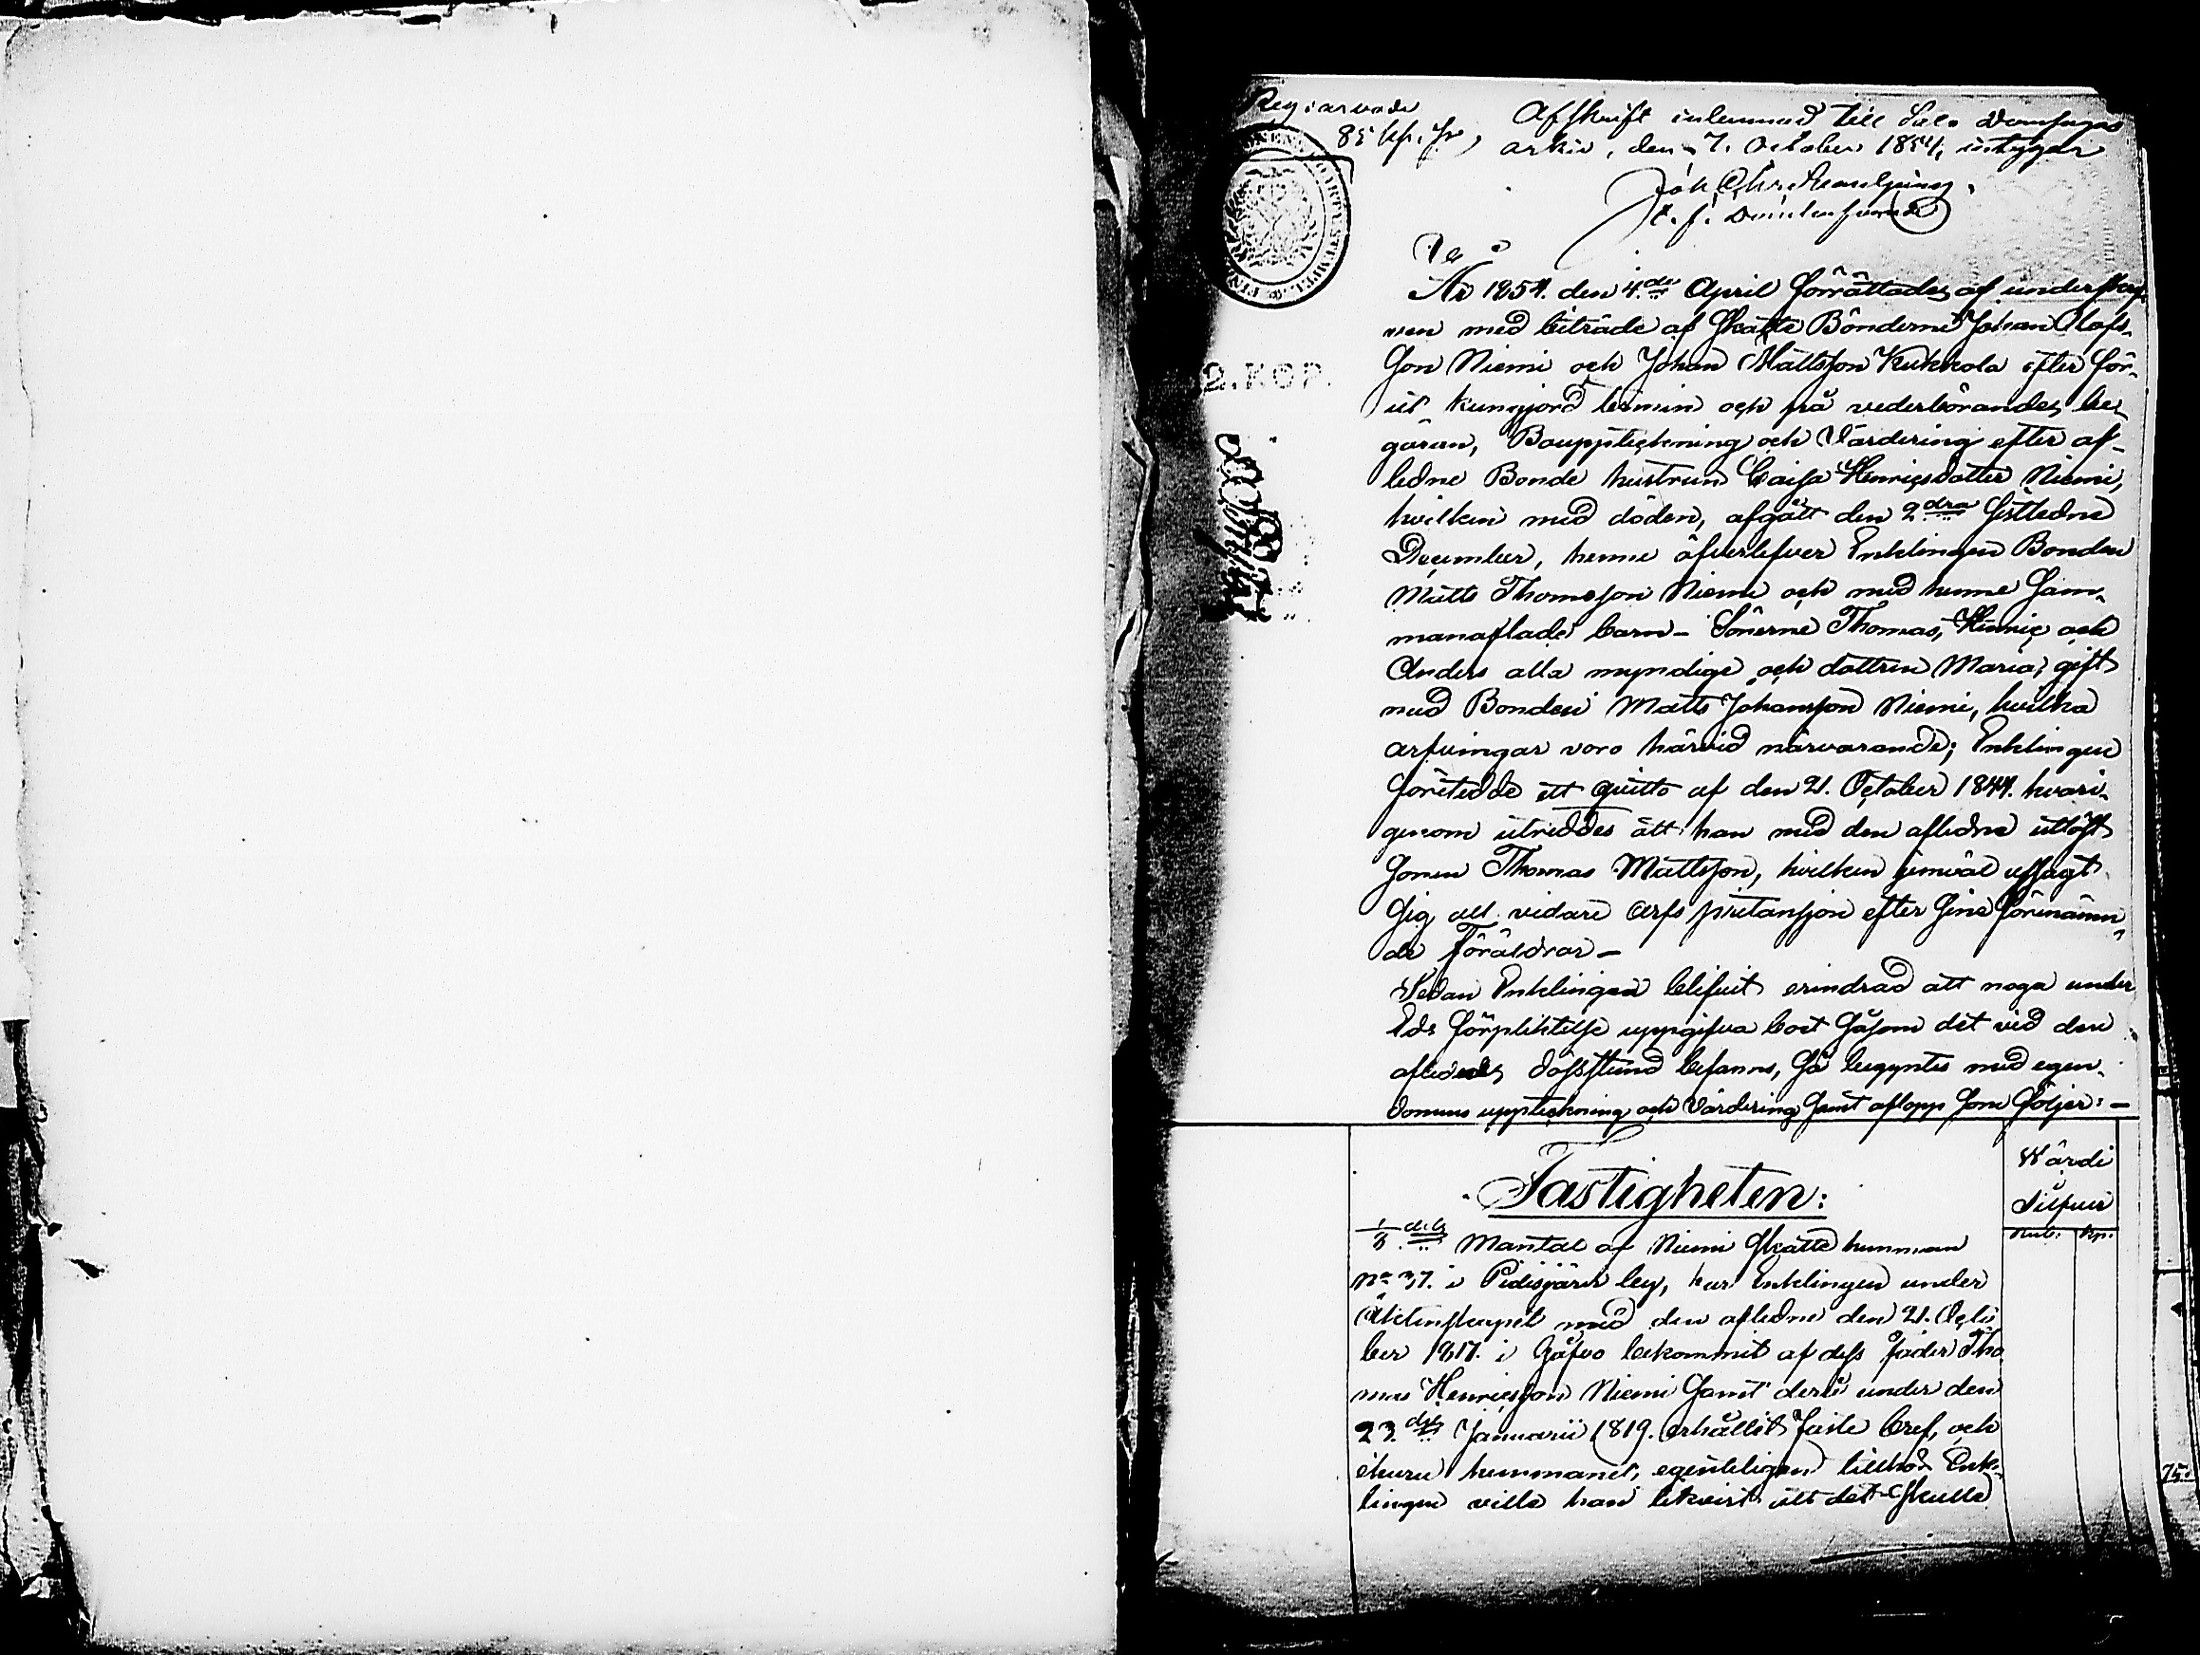 85 kp. Sr,
Afskrift inlemnad till Salo Domsagas
arkiv, den 7. October 1854, intygar
Joh Chr
t. f. Domhafvande
År 1854. den 4.de April förrättades af underskref-
ven med biträde af Skatte Bönderne Johan Olofs-
son Niemi och Johan Mattsson Kukkola efter för-
ut kungjord termin och på vederbörandes be-
gäran, Bouppteckning och Värdering efter af-
ledne Bonde hustrun Caisa Henricsdotter Niemi,
hvilken med döden, afgått den 2dra sistledne
December, henne öfverlefver Enklingen Bonden
Matts Thomsson Niemi och med henne sam-
manaflade barn - Sönerne Thomas, Henric och
Anders alla myndige och dottren Maria, gift
med Bonden Matts Johansson Niemi, hvilka
arfvingar voro härvid närvarande; Enklingen
företedde ett qvitto af den 21. October 1844. hvari-
genom utreddes att han med den afledna utlöst
sonen Thomas Mattsson, hvilken jemväl afsagt
sig all vidare arfs pretansion efter sine förenämn-
de Föräldrar -
Sedan Enklingen blifvit erindrad att noga under
Eds förpliktelse uppgifva boet såsom det vid den
aflednes dödsstund befanns, så begyntes med egen-
domens uppteckning och Värdering samt aflopp som följer: -
Fastigheten:
Wärde
Silfver
Rub. Kp.
1/8 dels Mantal af Niemi Skatte hemman
No 37. i Pidisjärvi by, har Enklingen under
Äktenskapet med den afledne den 21. Octo
ber 1817. i gåfvo bekommit af dess fader Tho
mas Henricsson Niemi samt derå under den
23.de Januarii 1819. erhållit Faste bref, och
ehuru hemmanet, egenteligen tillhör Enk-
lingen ville han likväl att det skulle
2. KOP.
75